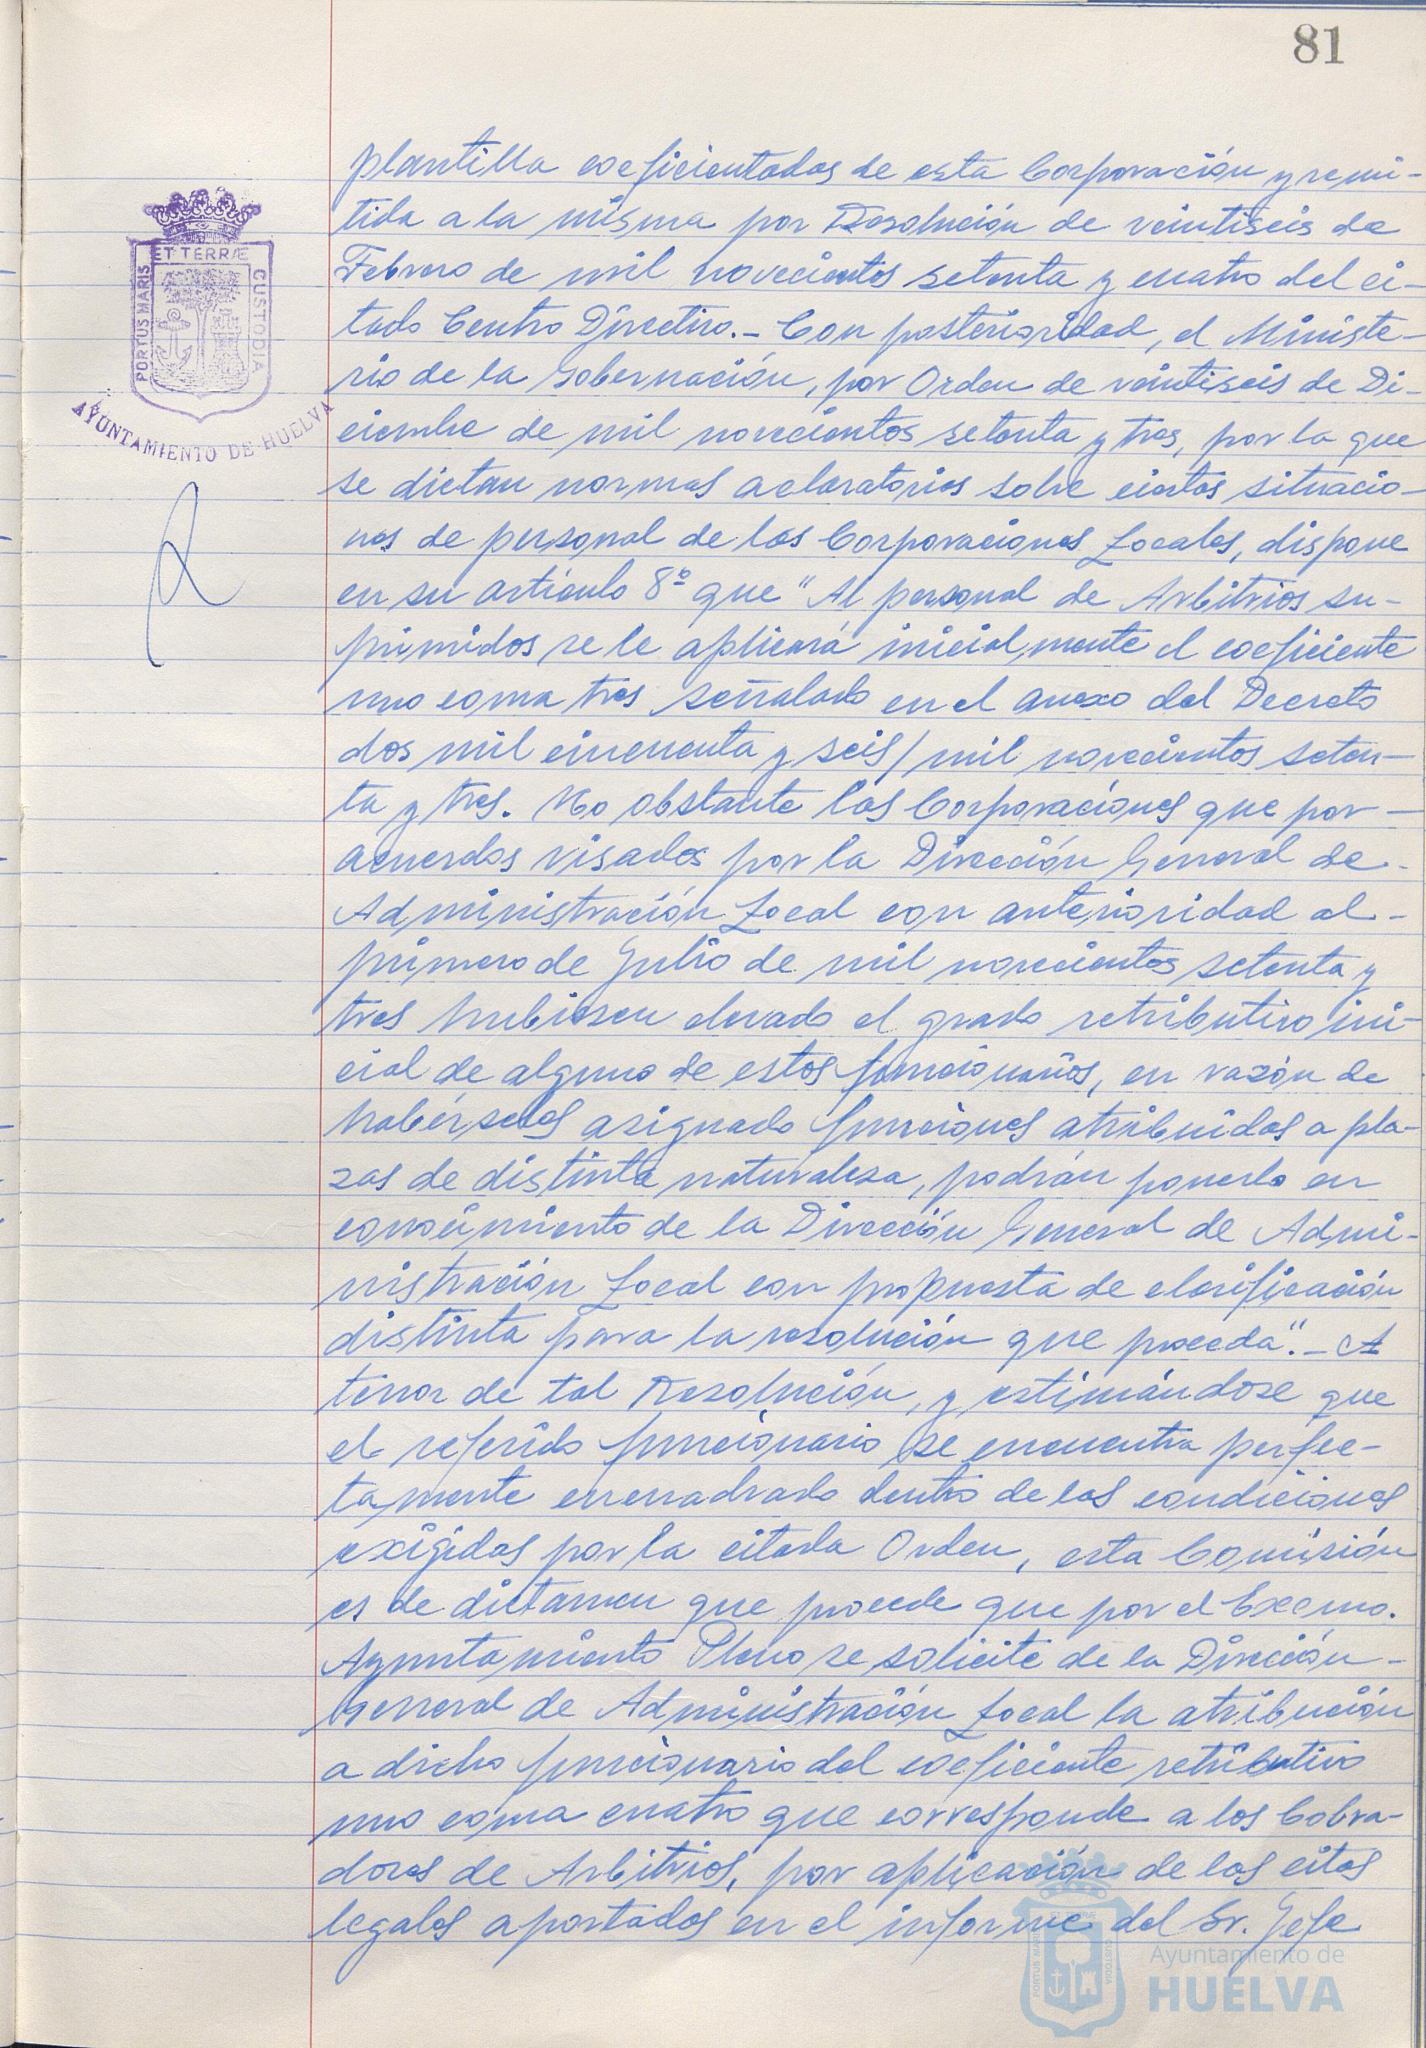 81
PORTUS MARIS
ET TERRÆ
CUSTODIA
AYUNTAMIENTO DE HUELVA
plantilla coeficientadas de esta Corporación y remi-
tida a la misma por Resolución de veintiseis de
Febrero de mil novecientos setenta y cuatro del ci-
tado Centro Directivo.- Con posterioridad, el Ministe-
rio de la Gobernación, por Orden de veintiseis de Di-
ciembre de mil novecientos setenta y tres, por la que
se dictan normas aclaratorias sobre ciertas situacio-
nes de personal de las Corporaciones Locales, dispone
en su artículo 8º que "Al personal de Arbitrios su-
primidos se le aplicará inicialmente el coeficiente
uno coma tres señalado en el anexo del Decreto
dos mil cincuenta y seis/mil novecientos seten-
ta y tres. No obstante las Corporaciones que por-
acuerdos visados por la Dirección General de-
Administración Local con anterioridad al-
primero de Julio de mil novecientos setenta y
tres hubiesen elevado el grado retributivo ini-
cial de alguno de estos funcionarios, en razón de
habérseles asignado funciones atribuidas a pla-
zas de distinta naturaleza, podrán ponerlo en
conocimiento de la Dirección General de Admi-
nistración Local con propuesta de clasificación
distinta para la resolución que proceda".- A
tenor de tal Resolución, y estimándose que
el referido funcionario se encuentra perfec-
tamente encuadrado dentro de las condiciones
exigidas por la citada Orden, esta Comisión
es de dictamen que procede que por el Excmo.
Ayuntamiento Pleno se solicite de la Dirección-
General de Administración Local la atribución
a dicho funcionario del coeficiente retributivo
uno coma cuatro que corresponde a los Cobra-
dores de Arbitrios, por aplicación de las citas
legales aportadas en el informe del Sr. Jefe
Ayuntamiento de
HUELVA